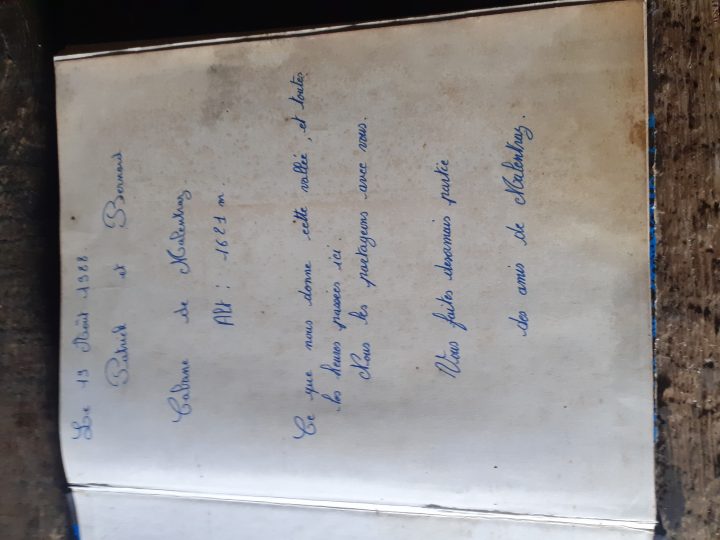 Le 13 Août 1988
Patrick et Bernard
Cabane de Malentraz.
Alt : 1621 m.
Ce que nous donne cette vallée, et toutes
les heures passées ici.
Nous les partageons avec vous.
Vous faites desormais partie
des amis de Malentraz.